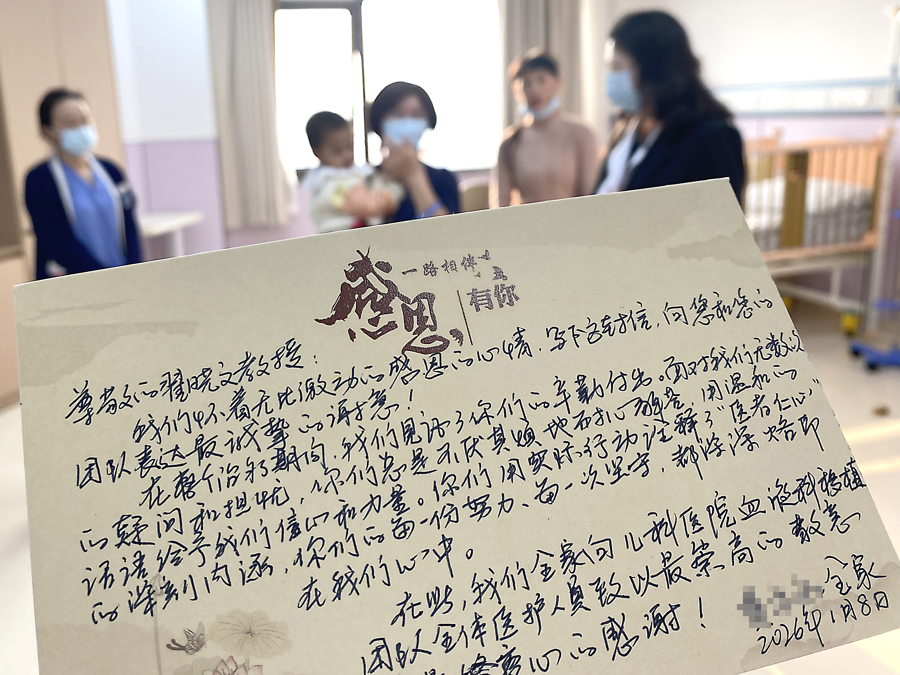 感恩
一路相伴
有你
尊敬的翟晓文教授：
我们怀着无比激动的感恩的心情，写下这封信，向您和您的
团队表达最诚挚的谢意！
在整个治疗期间，我们见证了你们的辛勤付出。面对我们无数次
的疑问和担忧，你们总是不厌其烦地耐心解答，用温和的
话语给予我们信心和力量。你们用实际行动诠释了“医者仁心”
的深刻内涵，你们的每一份努力、每一次坚守，都深深烙印
在我们心中。
在此，我们全家向儿科医院血液科移植
团队全体医护人员致以最崇高的敬意
心的感谢！
全家
2026年1月8日